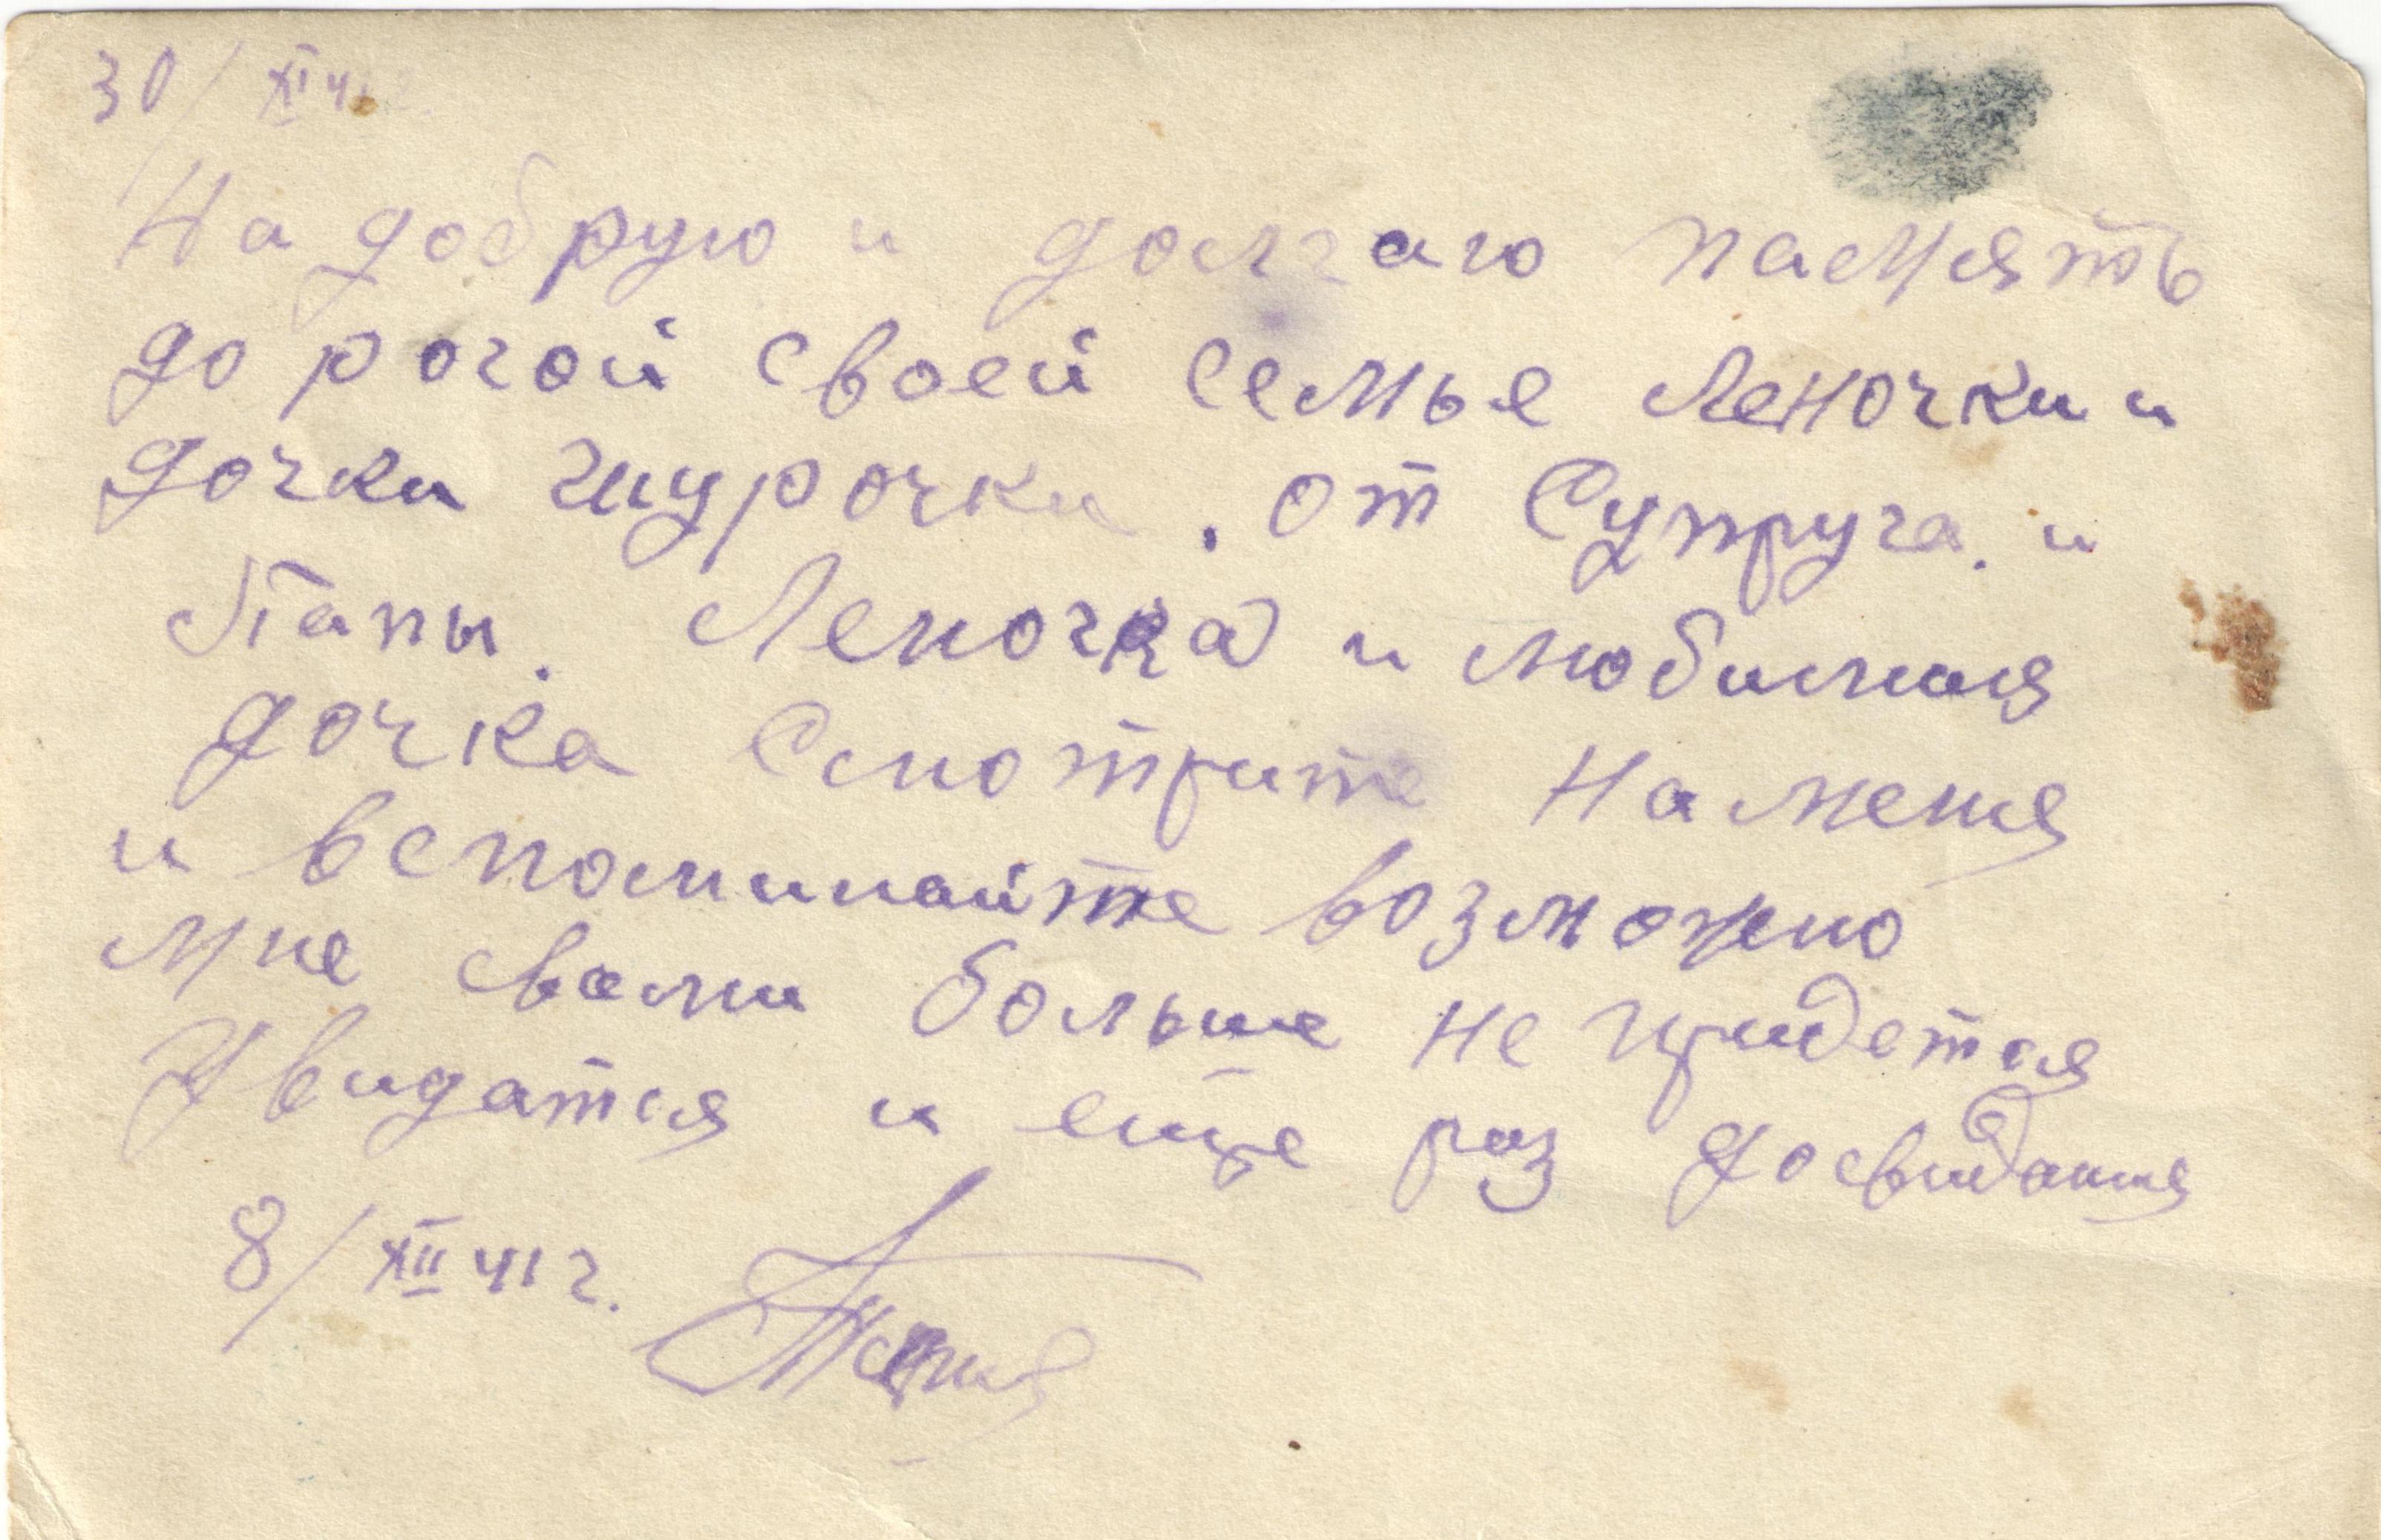 30/XI 41 г.
На добрую и долгаю память
дорогой своей семье Леночки и
дочки Шурочки. от Супруга. и
Папы. Леночка и любимая
дочка Смотрите На меня
и вспоминайте возможно
мне свами больше не придется
Увидатся и еще раз досвидания
8/XII 41 г.